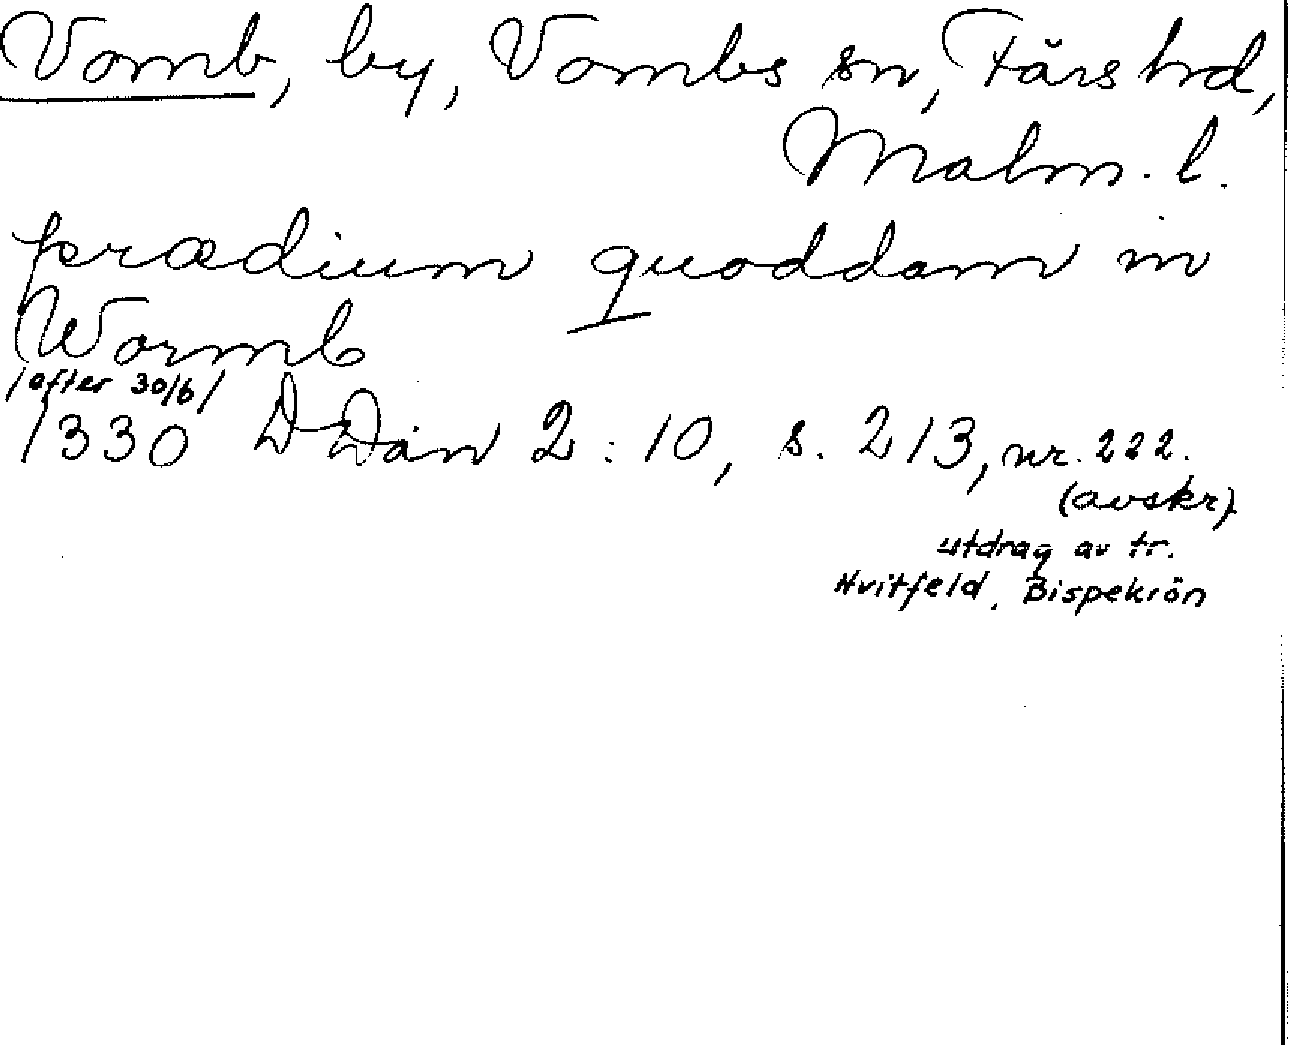 Vomb, by, Vombs sn, Färs hd,
Malm. l.
prædium quoddam in
Wormb
/after 30/6/
1330 D Dan 2:10, s. 213, nr. 222.
(avskr).
utdrag av tr.
Hvitfeld, Bispekrön